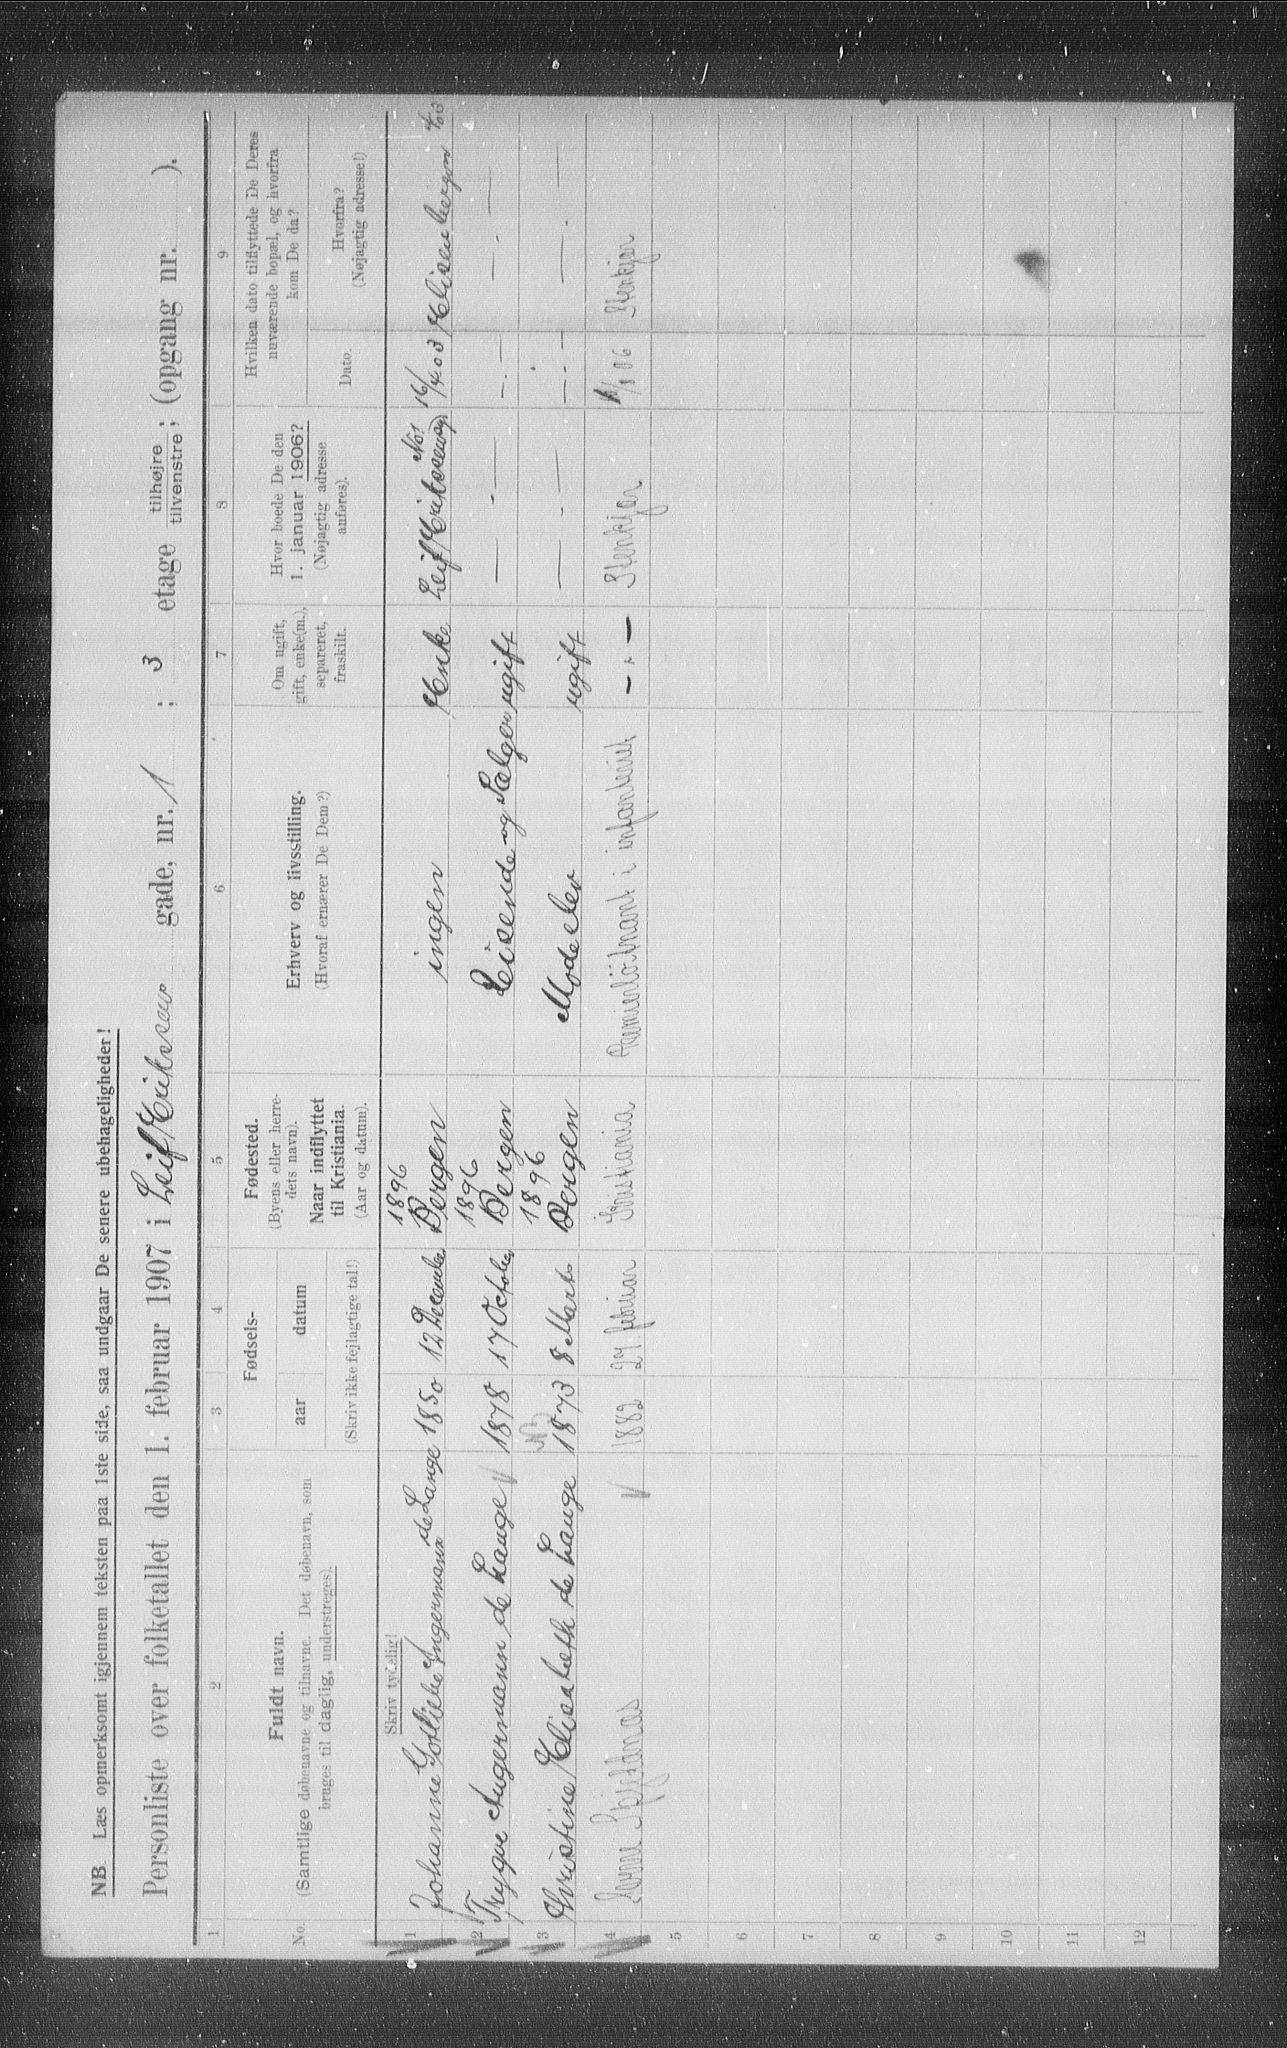 NB. Læs opmerksomt igjennem teksten paa 1ste side, saa undgaar De senere ubehageligheder!
Personliste over folketallet den 1. februar 1907 i Leif Eriksens gade, nr. 1 ; 3 etage tilhøjre ; tilvenstre ; (opgang nr. ).
1 2 3 4 5 6 7 8 9
No.
Fuldt navn.
(Samtlige døbenavne og tilnavne. Det døbenavn, som
bruges til daglig, understreges).
Fødsels-
aar datum
(Skriv ikke fejlagtige tal!)
Fødested.
(Byens eller herre-
dets navn).
Naar indflyttet
til Kristiania.
(Aar og datum).
Erhverv og livsstilling.
(Hvoraf ernærer De Dem?)
Om ugift,
gift, enke(m.),
separeret,
fraskilt.
Hvor boede De den
1. januar 1906?
(Nøjagtig adresse
anføres).
Hvilken dato tilflyttede De Deres
nuværende bopæl, og hvorfra
kom De da?
Dato.
Hvorfra?
(Nøjagtig adresse!)
Skriv tydelig!
1 Johanne Gotliebe Angermann de Lange 1850 12 December 1896 Bergen ingen Enke Leif Eriksensvej No 1 16/4 03 Elisenbergsv
2 Trygve Angermann de Lange 1878 17 October 1896 Bergen Reisende og Sælger ugift — . — — . — — . —
3 Christine Elisabeth de Lange 1873 8 Marts 1896 Bergen Modeler ugift — . — — . — — . —
4 Sverre Spjeldnæs 1882 27 februar Kristiania Premierløitnant i infanteriet — . — Stenkjær /8 06 Stenkjær
5
6
7
8
9
10
11
12